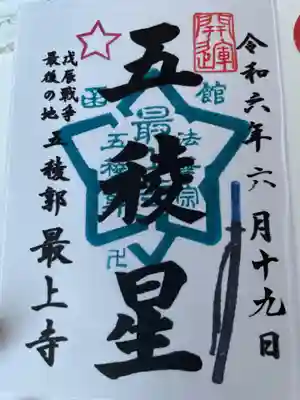 開運
令和六年六月十九日
五稜星
函館
最
法華宗
五稜郭
卍
戊辰戦争
最後の地
五稜郭 最上寺